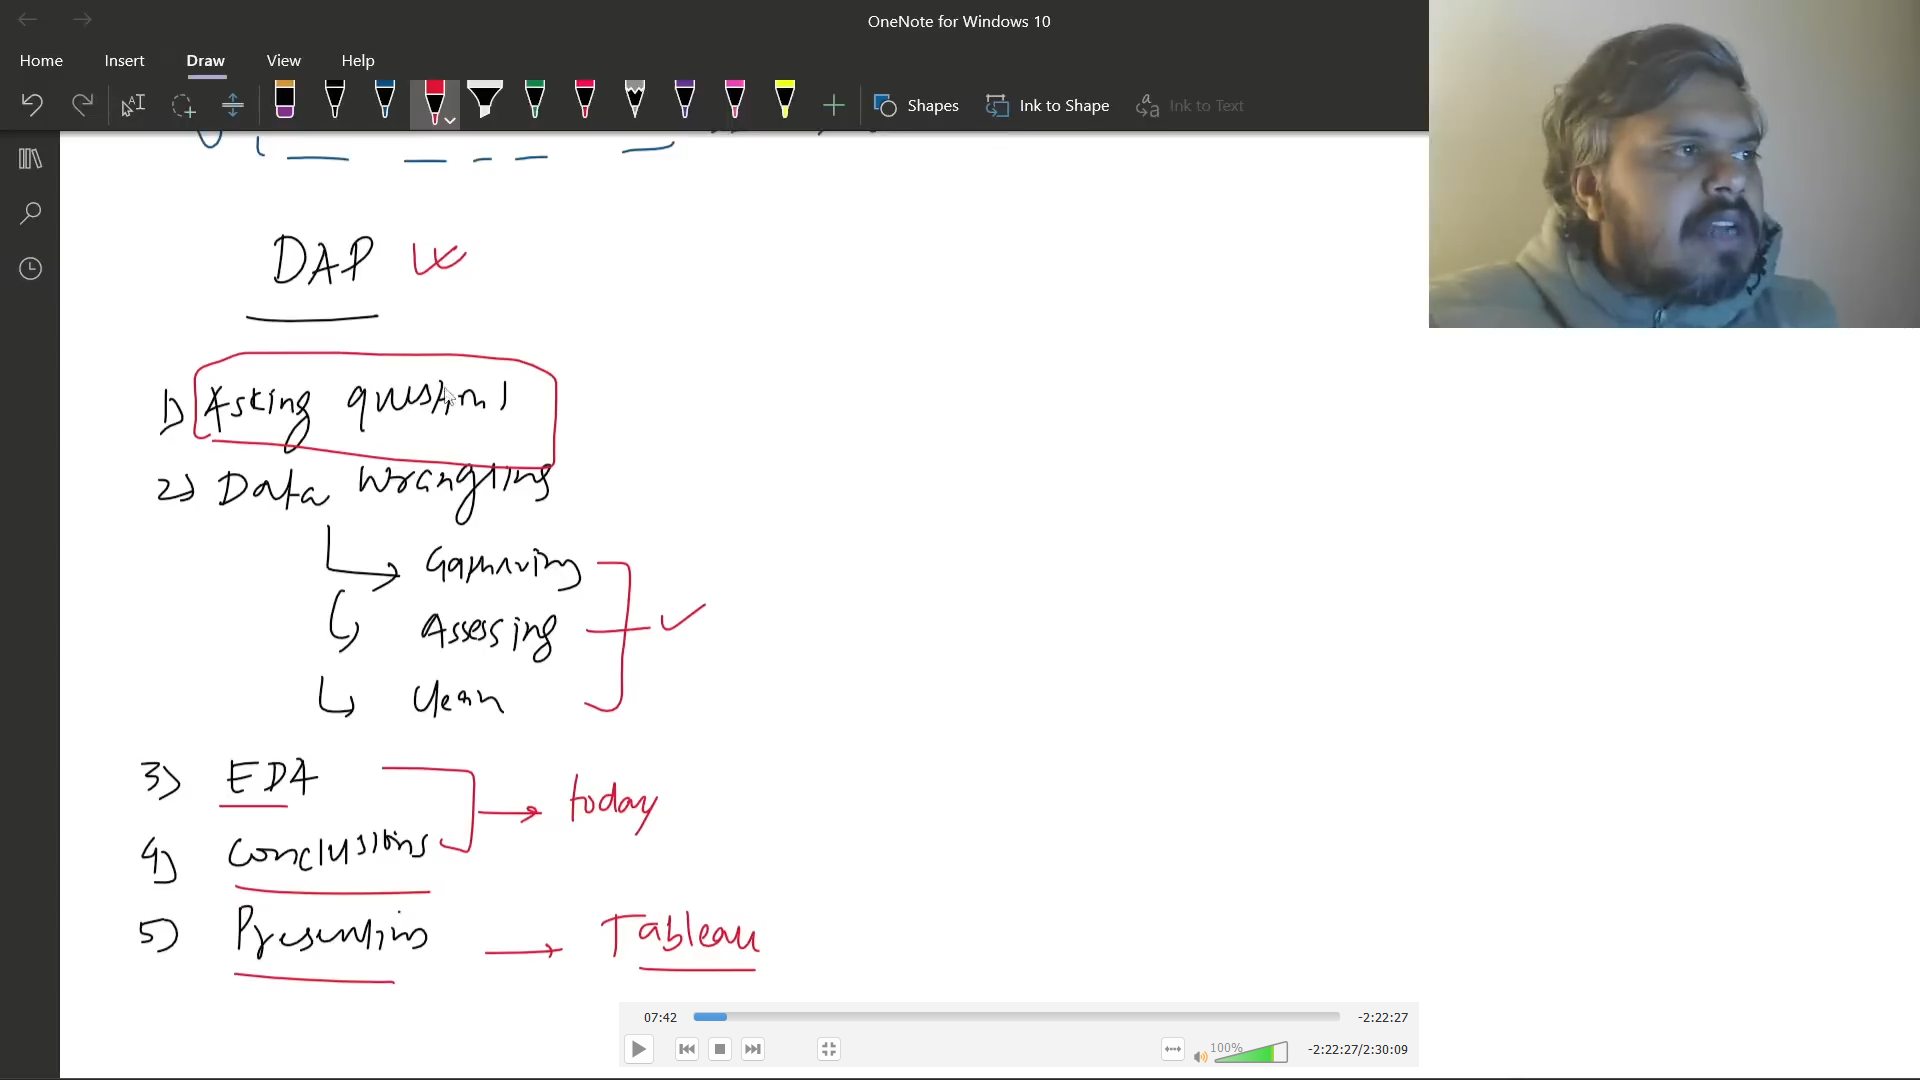 OneNote for Windows 10
Home Insert Draw View Help
Shapes Ink to Shape Ink to Text
DAP
1) Asking questions
2) Data Wrangling
Gathering
Assessing
Clean
3) EDA
today
4) Conclusions
5) Presenting → Tableau
07:42 -2:22:27
100% -2:22:27/2:30:09